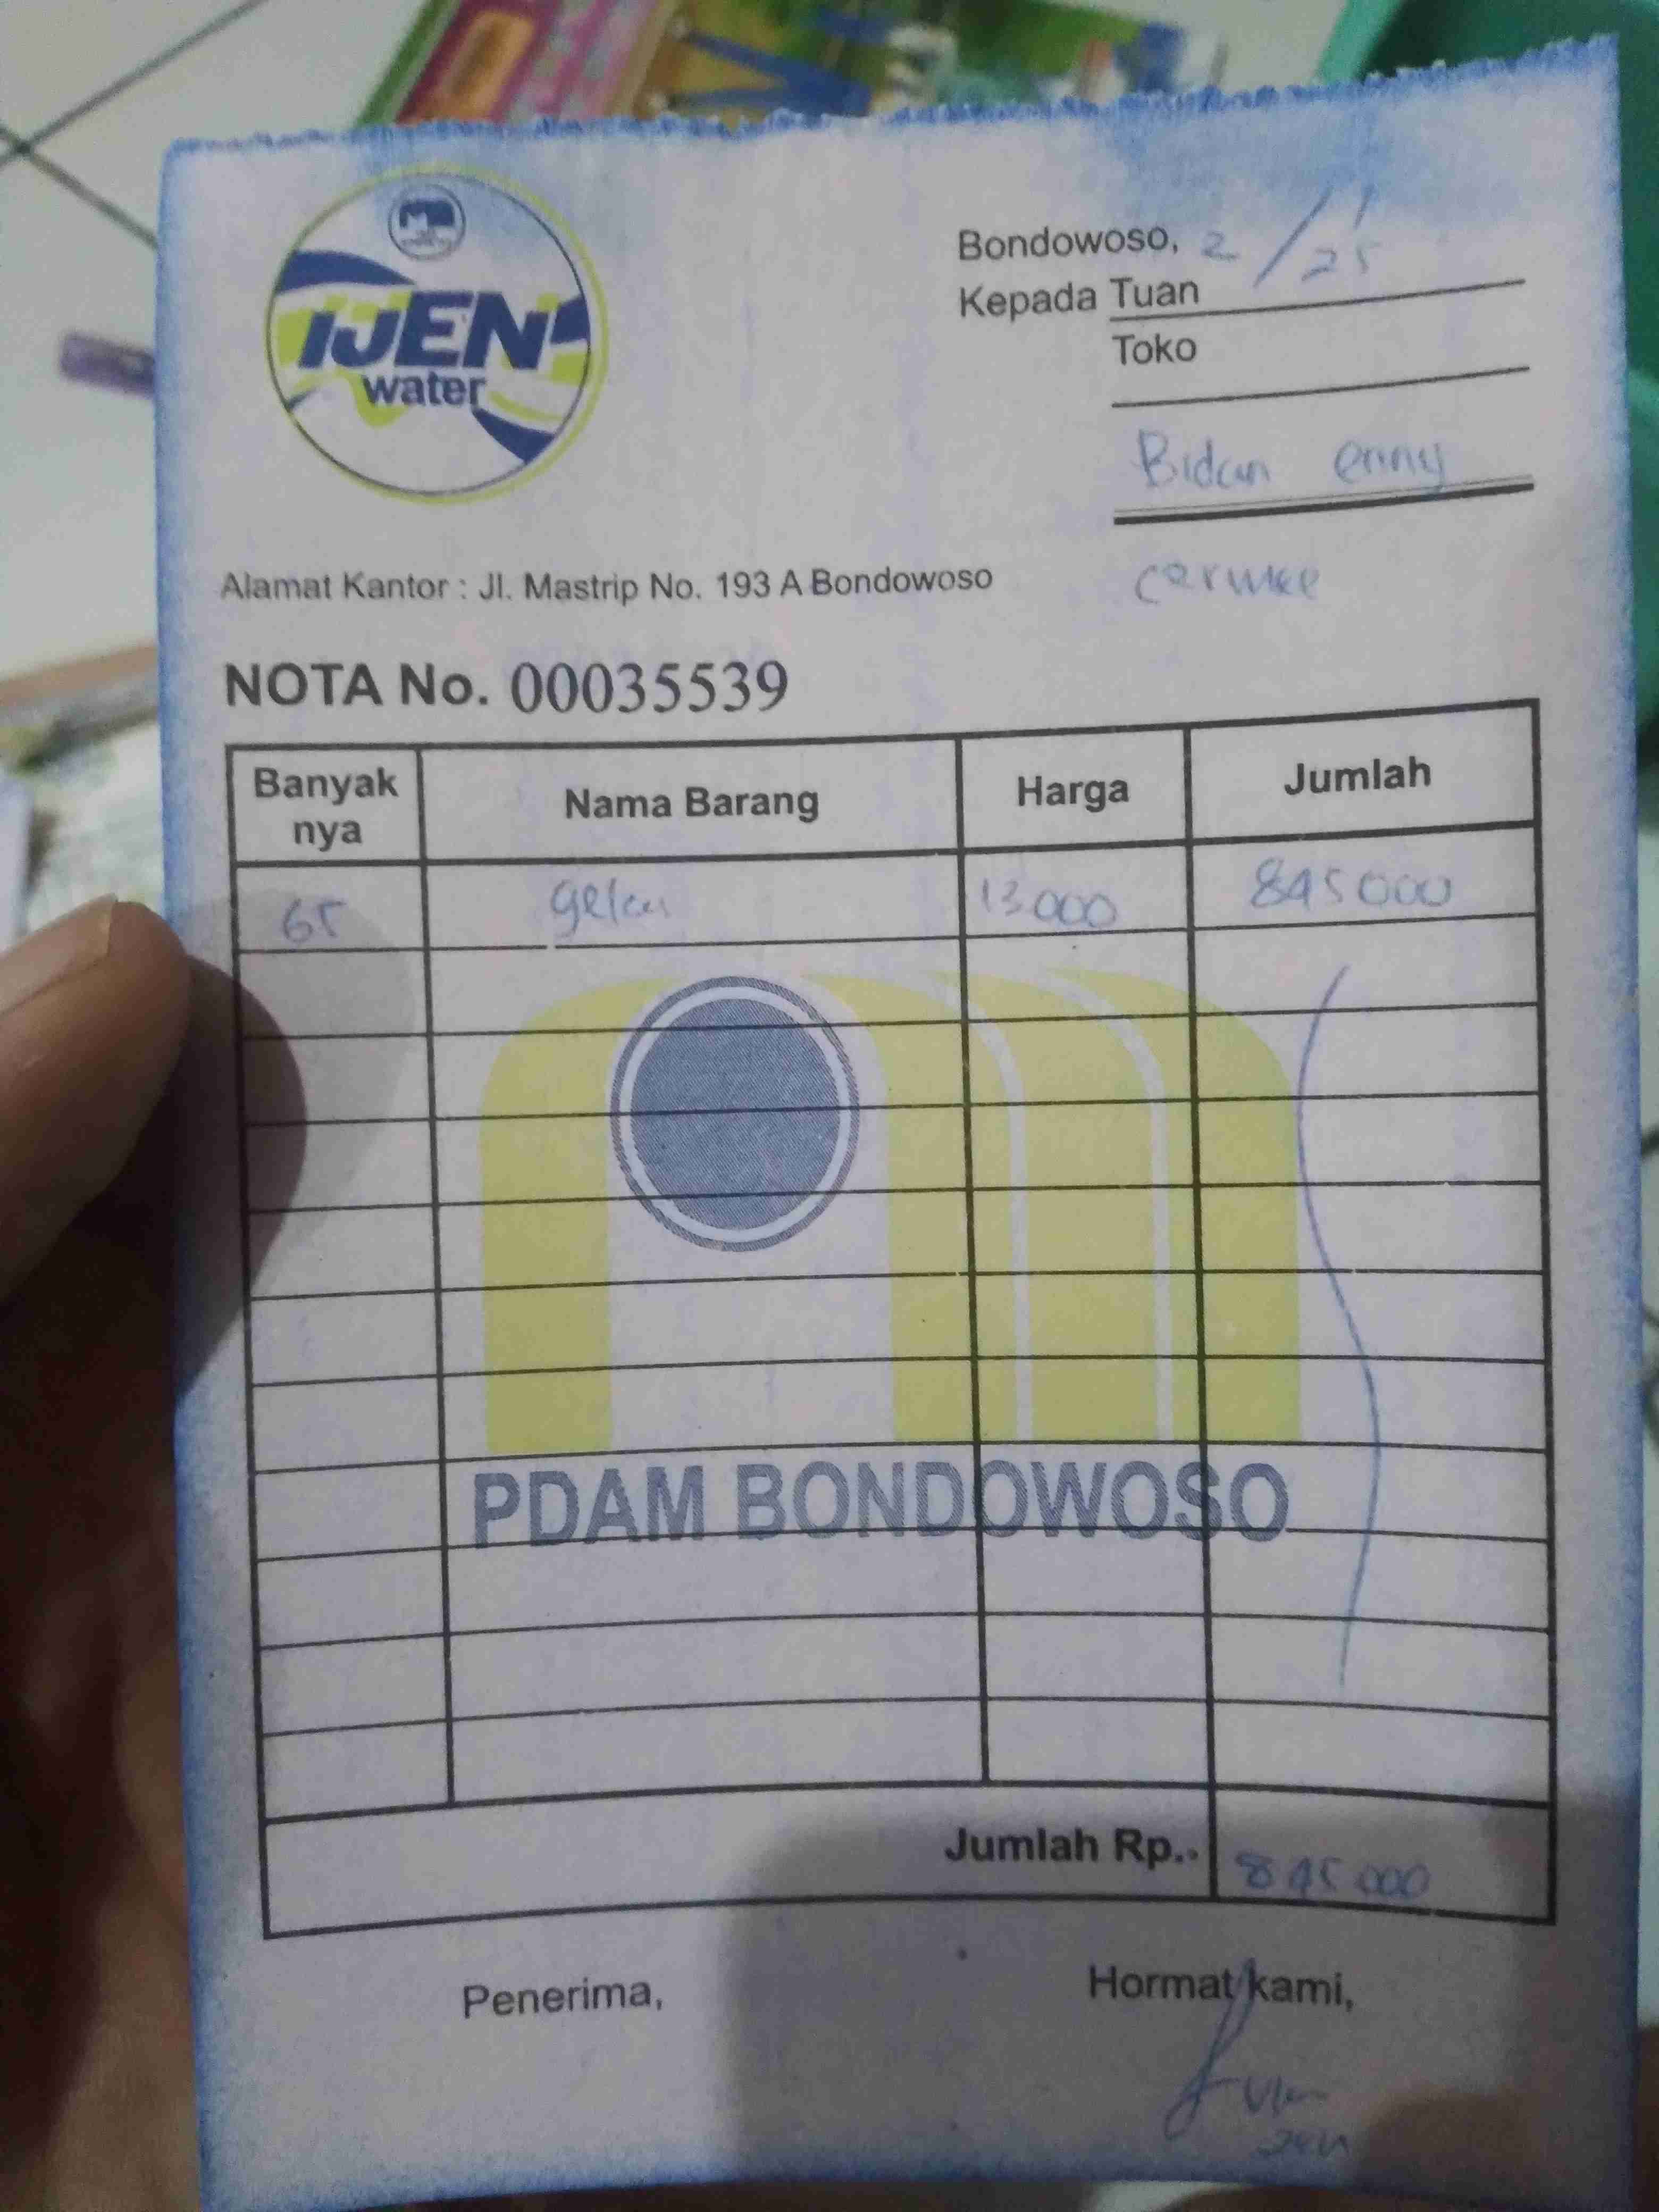 IJEN
water
Bondowoso, 2/1 25
Kepada Tuan
Toko
Bidan enny
Alamat Kantor : Jl. Mastrip No. 193 A Bondowoso
NOTA No. 00035539
Banyak nya Nama Barang Harga Jumlah
65 13 000 845 000
PDAM BONDOWOSO
Jumlah Rp.. 845 000
Penerima,
Hormat kami,